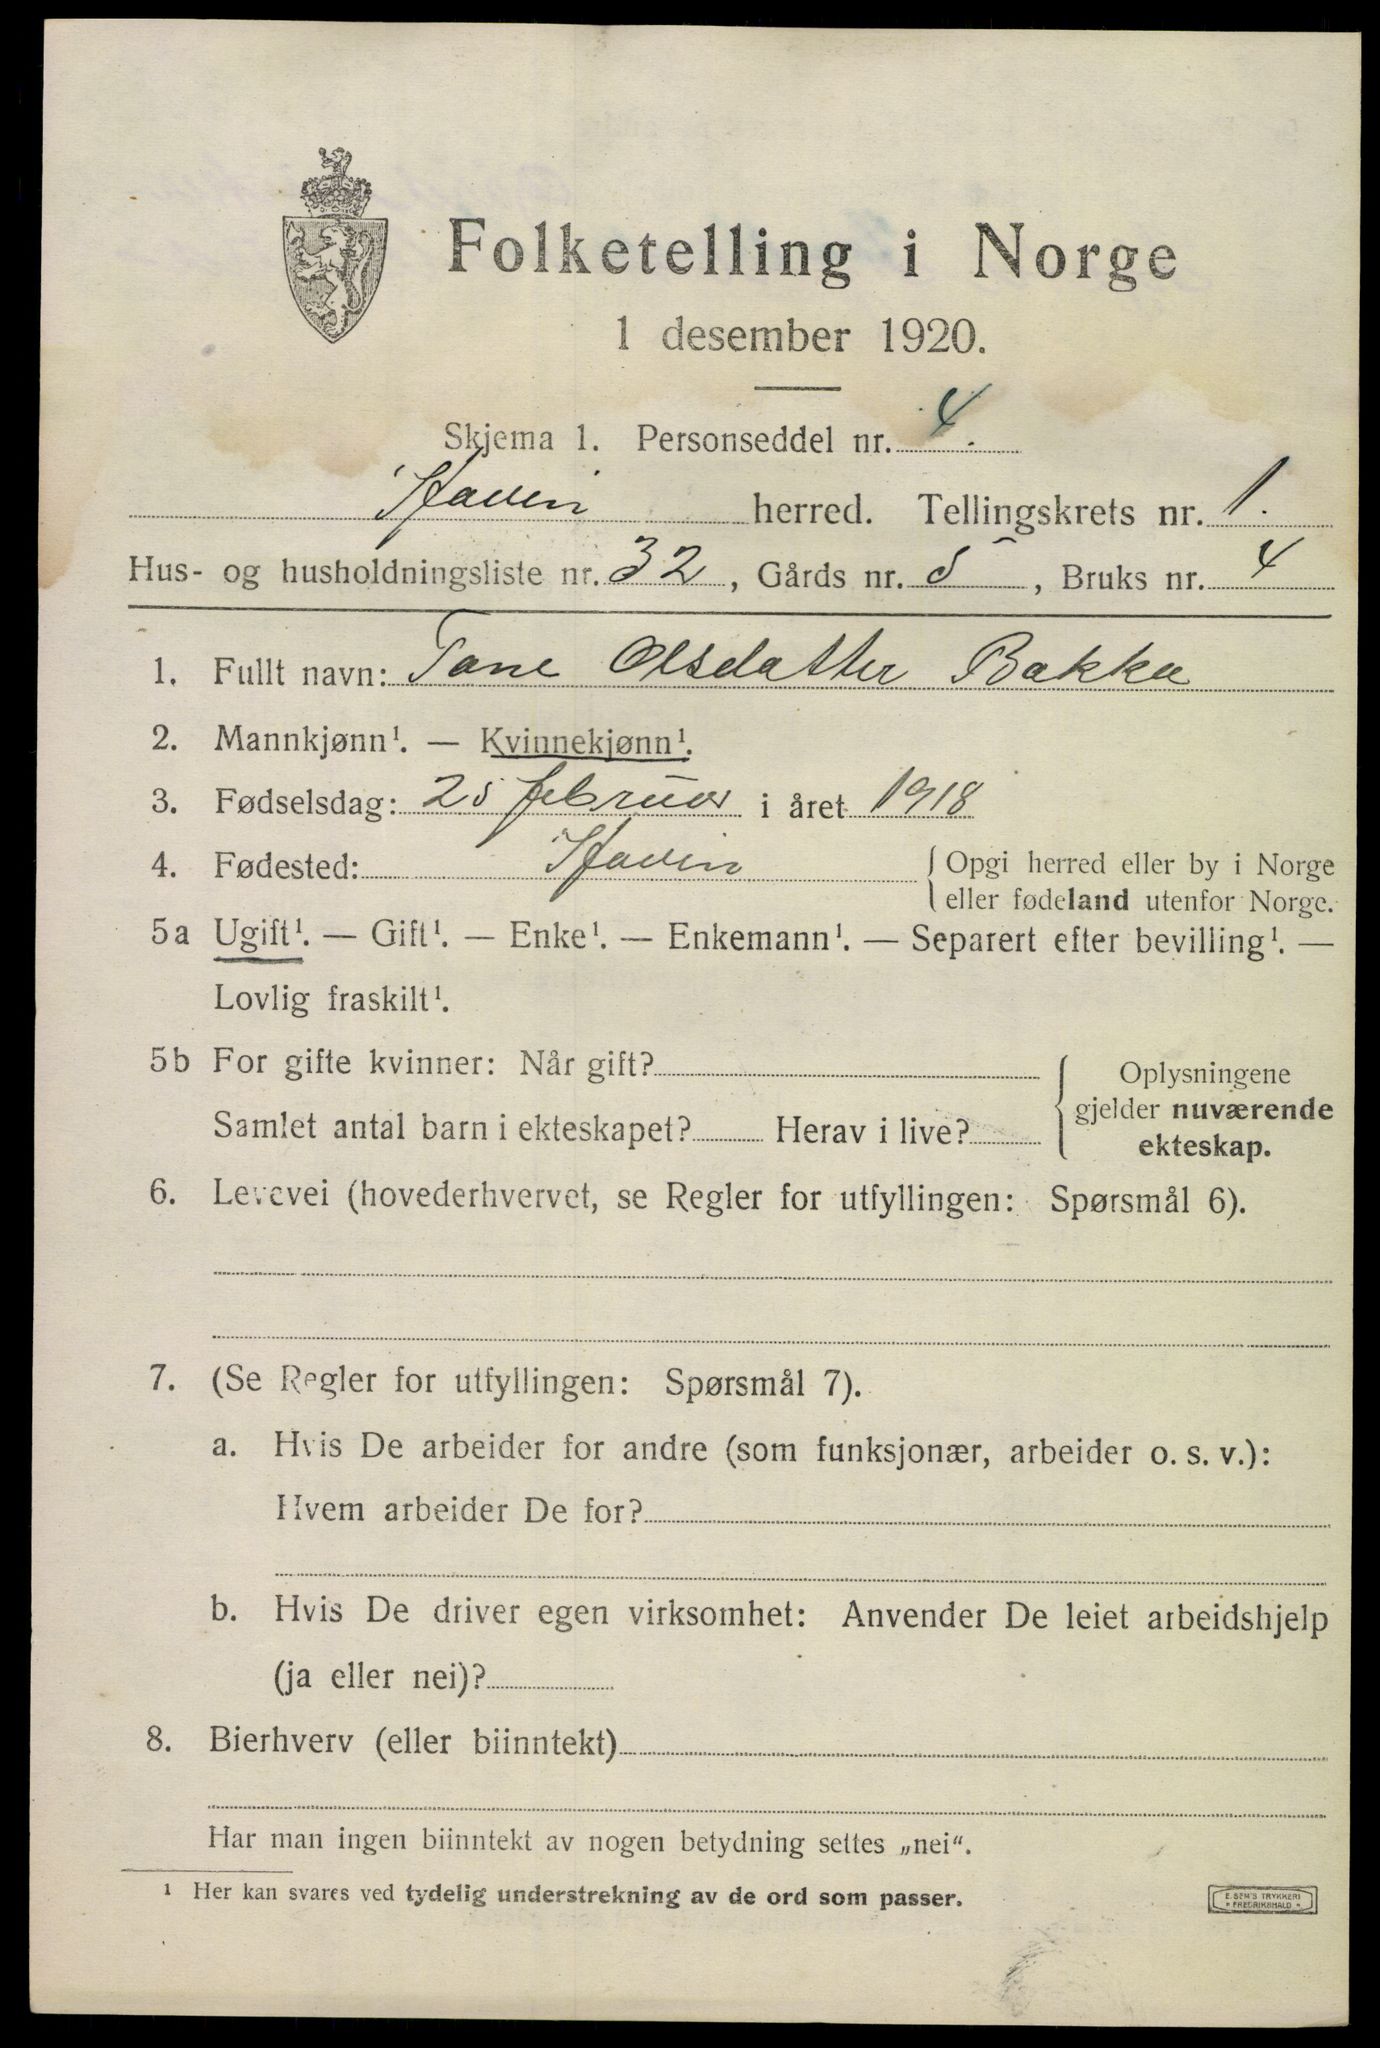 Folketelling i Norge
1 desember 1920.
Skjema 1. Personseddel nr. 4.
Hovin herred. Tellingskrets nr. 1.
Hus- og husholdningsliste nr. 32, Gårds nr. 5, Bruks nr. 4
1. Fullt navn: Tone Olsdatter Bakka
2. Mannkjønn¹. — Kvinnekjønn¹.
3. Fødselsdag: 25 februar i året 1918
4. Fødested: Hovin { Opgi herred eller by i Norge
eller fødeland utenfor Norge.
5a Ugift¹. — Gift¹. — Enke¹. — Enkemann¹. — Separert efter bevilling¹. —
Lovlig fraskilt¹.
5b For gifte kvinner: Når gift?
Samlet antal barn i ekteskapet? Herav i live?
Oplysningene
gjelder nuværende
ekteskap.
6. Levevei (hovederhvervet, se Regler for utfyllingen: Spørsmål 6).
7. (Se Regler for utfyllingen: Spørsmål 7).
a. Hvis De arbeider for andre (som funksjonær, arbeider o. s. v.):
Hvem arbeider De for?
b. Hvis De driver egen virksomhet: Anvender De leiet arbeidshjelp
(ja eller nei)?
8. Bierhverv (eller biinntekt)
Har man ingen biinntekt av nogen betydning settes „nei“.
¹ Her kan svares ved tydelig understrekning av de ord som passer.
E. SEM'S TRYKKERI
* FREDRIKSHALD *